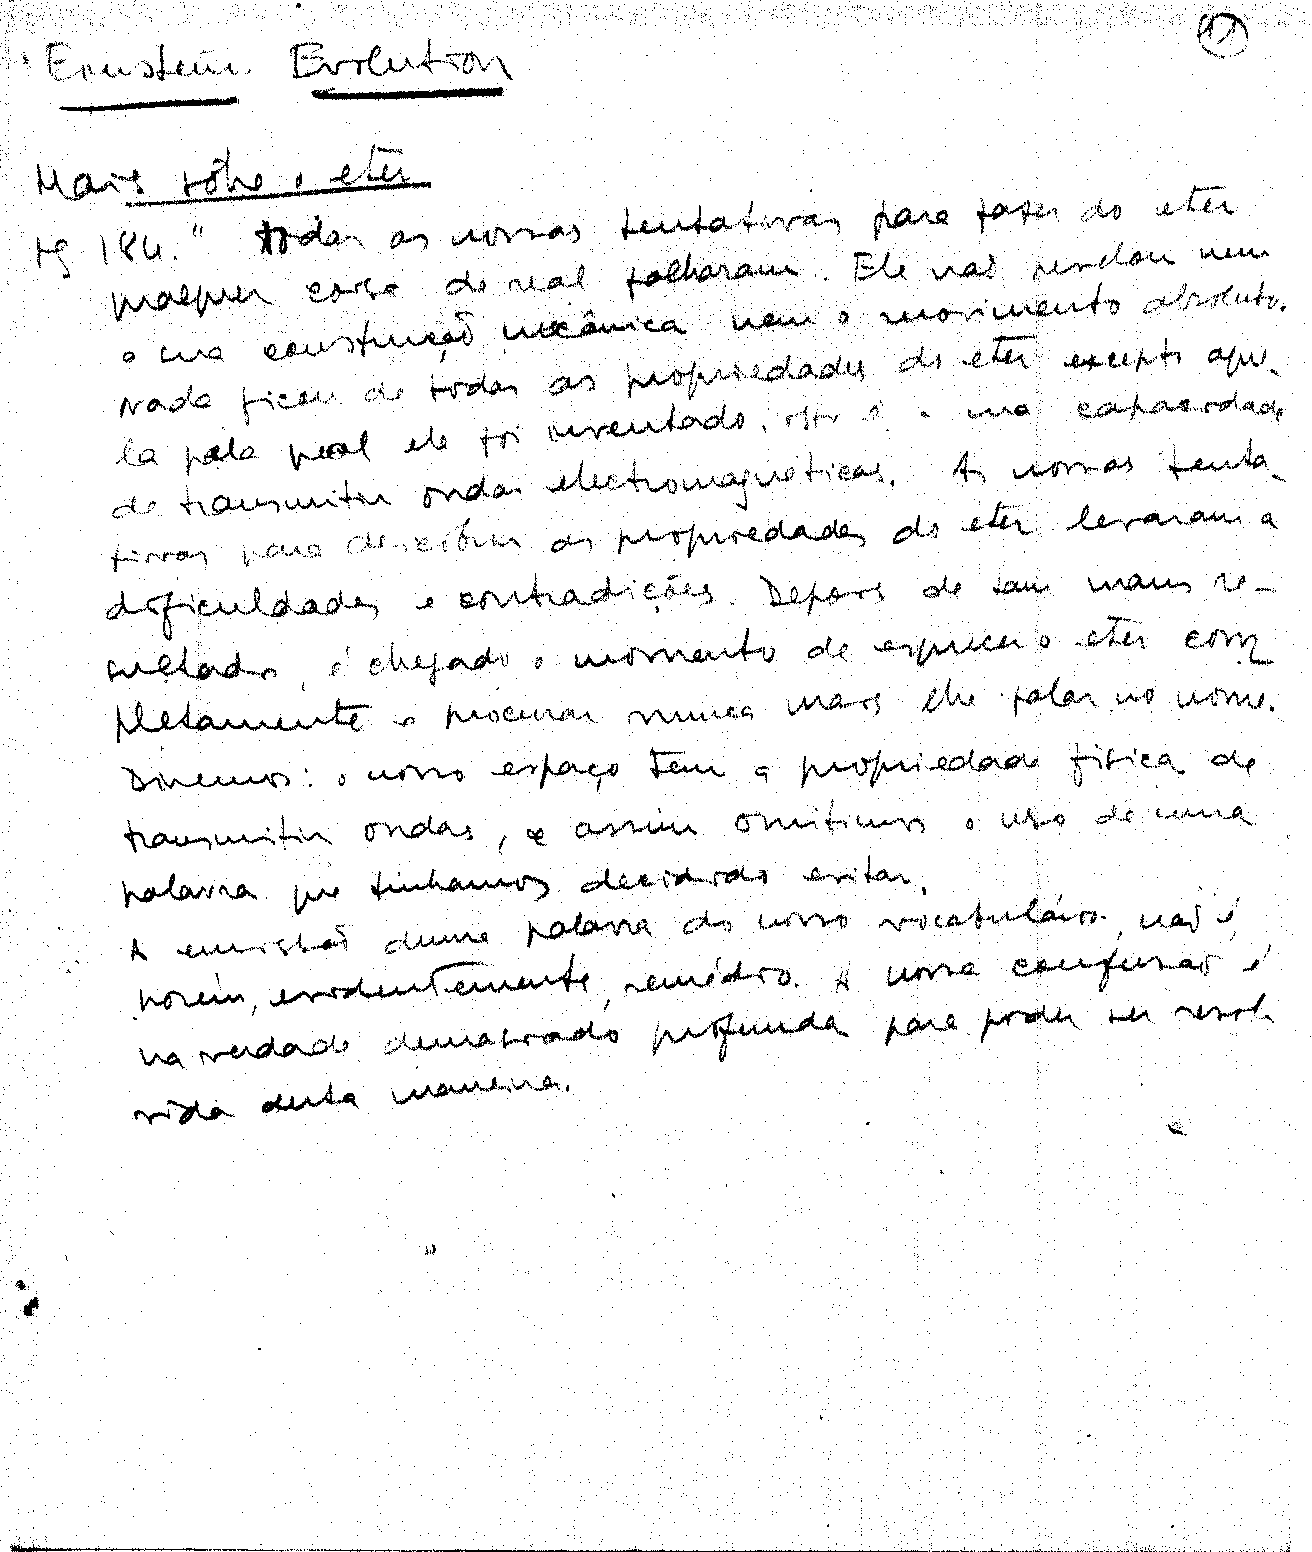 Einstein. Evolution
Mais sôbre o eter
Pg 184. " Todas as nossas tentativas para fazer do eter
qualquer coisa de real falharam. Ele não revelou nem
a sua construção mecânica nem o movimento absoluto.
Nada ficou de todas as propriedades do eter excepto aque-
la pela qual ele foi inventado, isto é a sua capacidade
de transmitir ondas electromagneticas. As nossas tenta-
tivas para descobrir as propriedades do eter levaram a
dificuldades e contradições. Depois de tam maus re-
sultados, é chegado o momento de esquecer o eter com
pletamente e procurar nunca mais lhe falar no nome.
Diremos: o nosso espaço tem a propriedade fisica de
transmitir ondas, e assim omitimos o uso de uma
palavra que tinhamos decidido evitar.
A omissão duma palavra do nosso vocabulário, não é,
porém, evidentemente, remédio. A nossa confusão é
na verdade demasiado profunda para poder ser resol
vida desta maneira.